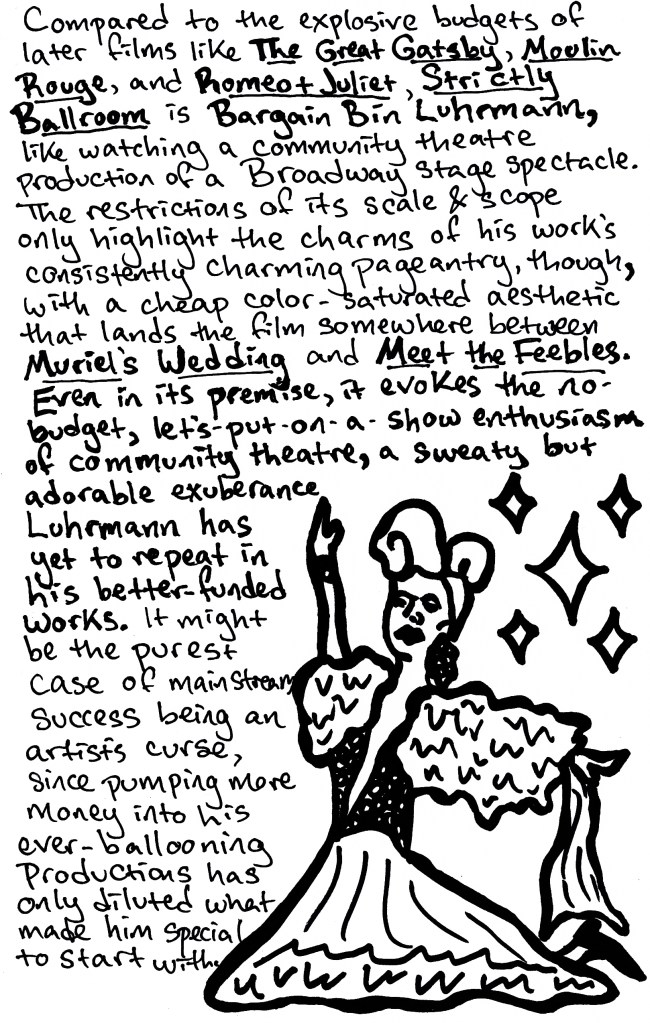 Compared to the explosive budgets of
later films like The Great Gatsby, Moulin
Rouge, and Romeo + Juliet, Strictly
Ballroom is Bargain Bin Luhrmann,
like watching a community theatre
production of a Broadway stage spectacle.
The restrictions of its scale & scope
only highlight the charms of his work's
consistently charming pageantry, though,
with a cheap color-saturated aesthetic
that lands the film somewhere between
Muriel's Wedding and Meet the Feebles.
Even in its premise, it evokes the no-
budget, let's-put-on-a-show enthusiasm
of community theatre, a sweaty but
adorable exuberance
Luhrmann has
yet to repeat in
his better-funded
works. It might
be the purest
case of mainstream
success being an
artist's curse,
since pumping more
money into his
ever-ballooning
Productions has
only diluted what
made him special
to start with.